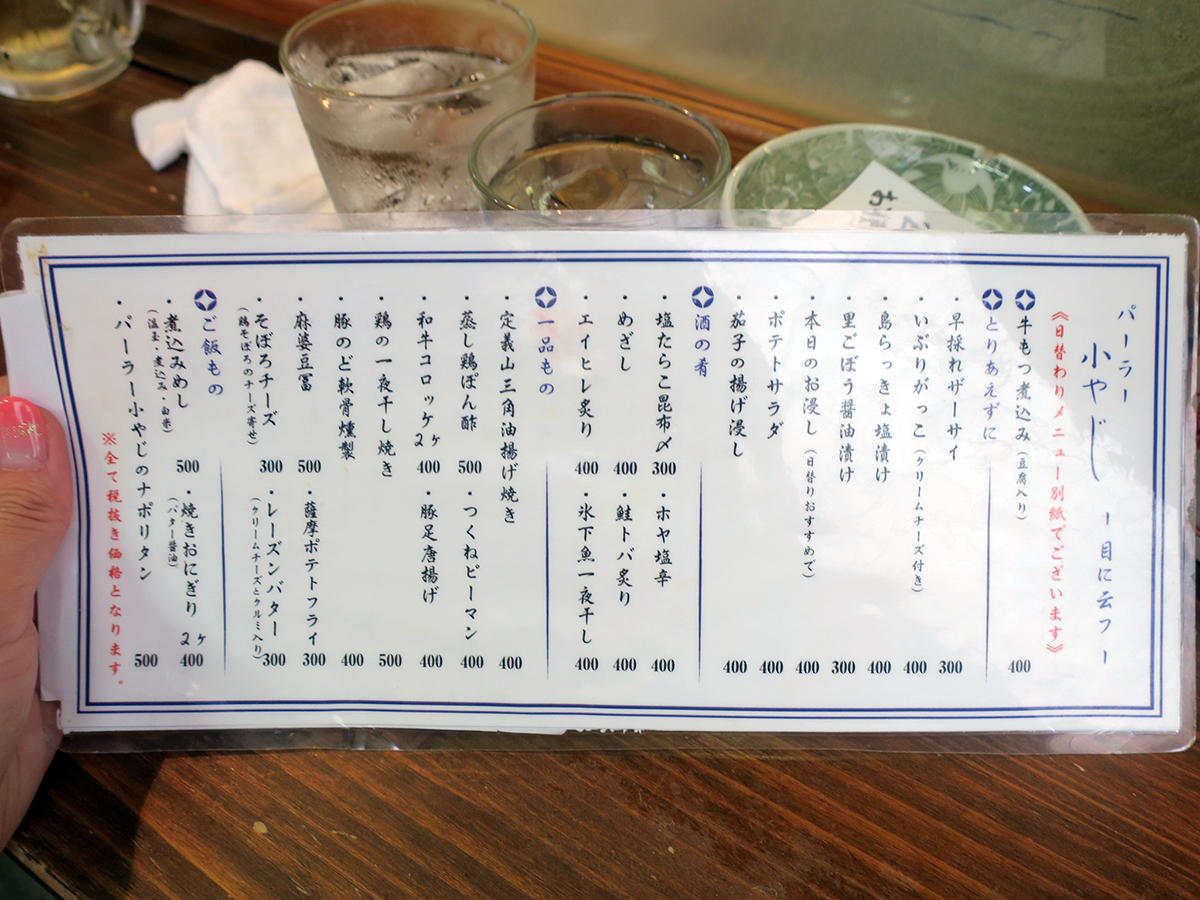 パーラー
小やじ
ー目に云フー
《日替わりメニュー別紙でございます》
牛もつ煮込み(豆腐入り) 400
とりあえずに
・早採れザーサイ 300
・いぶりがっこ(クリームチーズ付き) 400
・島らっきょ塩漬け 400
・里ごぼう醤油漬け 300
・本日のお浸し(日替りおすすめで) 400
・ポテトサラダ 400
・茄子の揚げ浸し 400
酒の肴
・塩たらこ昆布〆 300
・ホヤ塩辛 400
・めざし 400
・鮭トバ炙り 400
・エイヒレ炙り 400
・氷下魚一夜干し 400
一品もの
・定義山三角油揚げ焼き 400
・蒸し鶏ぽん酢 500
・つくねピーマン 400
・和牛コロッケ2ヶ 400
・豚足唐揚げ 400
・鶏の一夜干し焼き 500
・豚のど軟骨燻製 400
・麻婆豆冨 500
・薩摩ポテトフライ 300
・そぼろチーズ 300
(鶏そぼろのチーズ寄せ)
・レーズンバター 300
(クリームチーズとクルミ入り)
ご飯もの
・煮込みめし 500
(温玉・煮込み・白米)
・焼きおにぎり 2ヶ 400
(バター醤油)
・パーラー小やじのナポリタン 500
※全て税抜き価格となります。